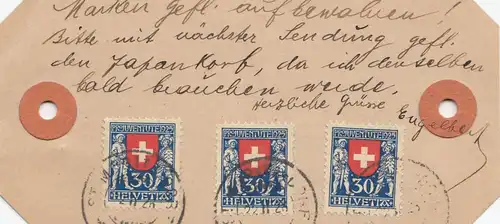 Marken gefl. aufbewahren!
Bitte mit nächster Sendung gefl.
den Japankorb, da ich denselben
bald brauchen werde.
Herzliche Grüsse
Engelbert
PRO JUVENTUTE 1925 PRO JUVENTUTE 1925 PRO JUVENTUTE 1925
30 30 30
HELVETIA HELVETIA HELVETIA